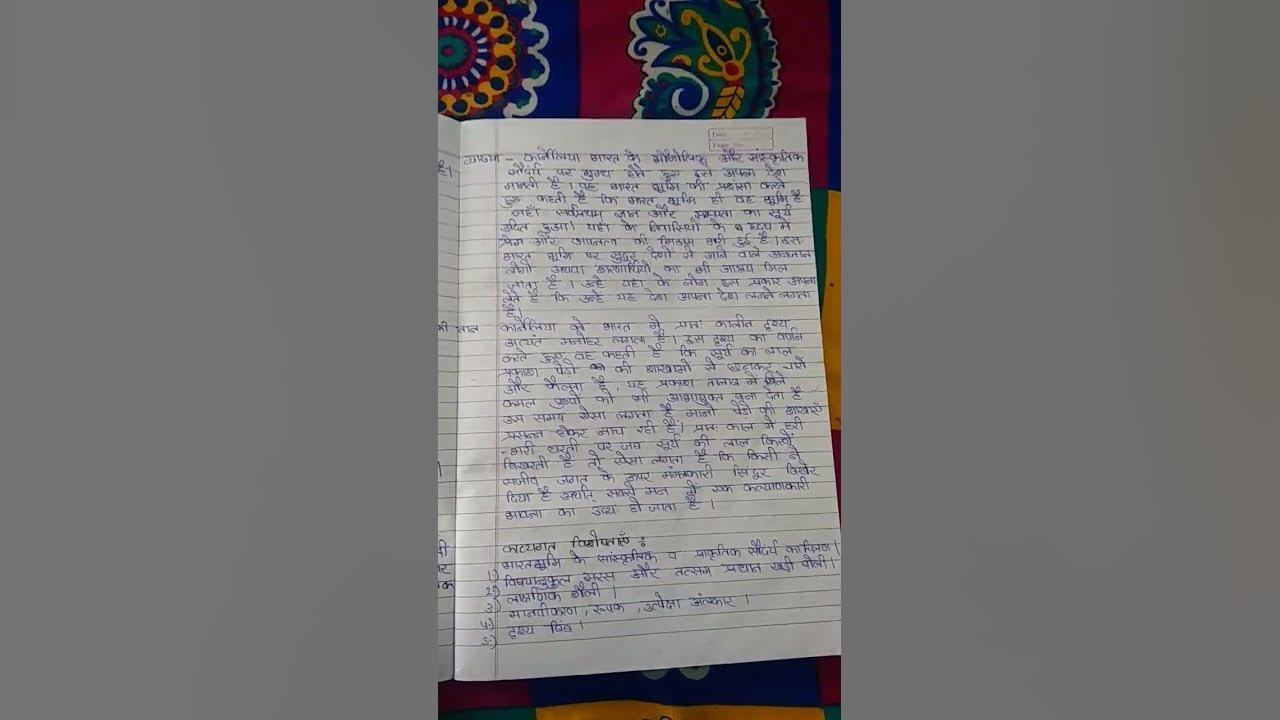 व्याख्या - कार्नेलिया भारत के भौगोलिक और सांस्कृतिक
सौंदर्य पर मुग्ध होते हुए इसे अपना देश
मानती है। वह भारत भूमि की प्रशंसा करते
हुए कहती है कि भारत भूमि ही वह भूमि है
जहाँ सर्वप्रथम ज्ञान और सभ्यता का सूर्य
उदित हुआ। यहां के निवासियों के हृदय में
प्रेम और अपनत्व की मिठास भरी हुई है। इस
भारत भूमि पर सुदूर देशों से आने वाले अनजान
लोगों अथवा शरणार्थियों का भी आश्रय मिल
जाता है। उन्हे यहां के लोग इस प्रकार अपना
लेते है कि उन्हे यह देश अपना देश लगने लगता
है।
कार्नेलिया को भारत में प्रातः कालीन दृश्य
अत्यंत मनोहर लगता है। इस दृश्य का वर्णन
करते हुए वह कहती है कि सूर्य का लाल
प्रकाश पेड़ो की शाखाओं से छनकर चारों
ओर फैलता है, यह प्रकाश तालाब में खिले
कमल पुष्पों को भी आभायुक्त बना देता है
उस समय ऐसा लगता है मानो पेड़ों की शाखाएँ
प्रसन्न होकर नाच रही हैं। प्रातः काल में हरी
-भरी धरती पर जब सूर्य की लाल किरणें
बिखरती है तो ऐसा लगता है कि किसी ने
सजीव जगत के ऊपर मंगलकारी सिंदूर बिखेर
दिया है अर्थात् सबके मन में एक कल्याणकारी
भावना का उदय हो जाता है।
काव्यगत विशेषताएँ :
1) भारतभूमि के सांस्कृतिक व प्राकृतिक सौंदर्य का चित्रण।
2) विषयानुकूल सरस और तत्सम प्रधान खड़ी बोली।
3) लाक्षणिक शैली।
4.) मानवीकरण, रूपक, उत्प्रेक्षा अंलकार।
5.) दृश्य बिंब।